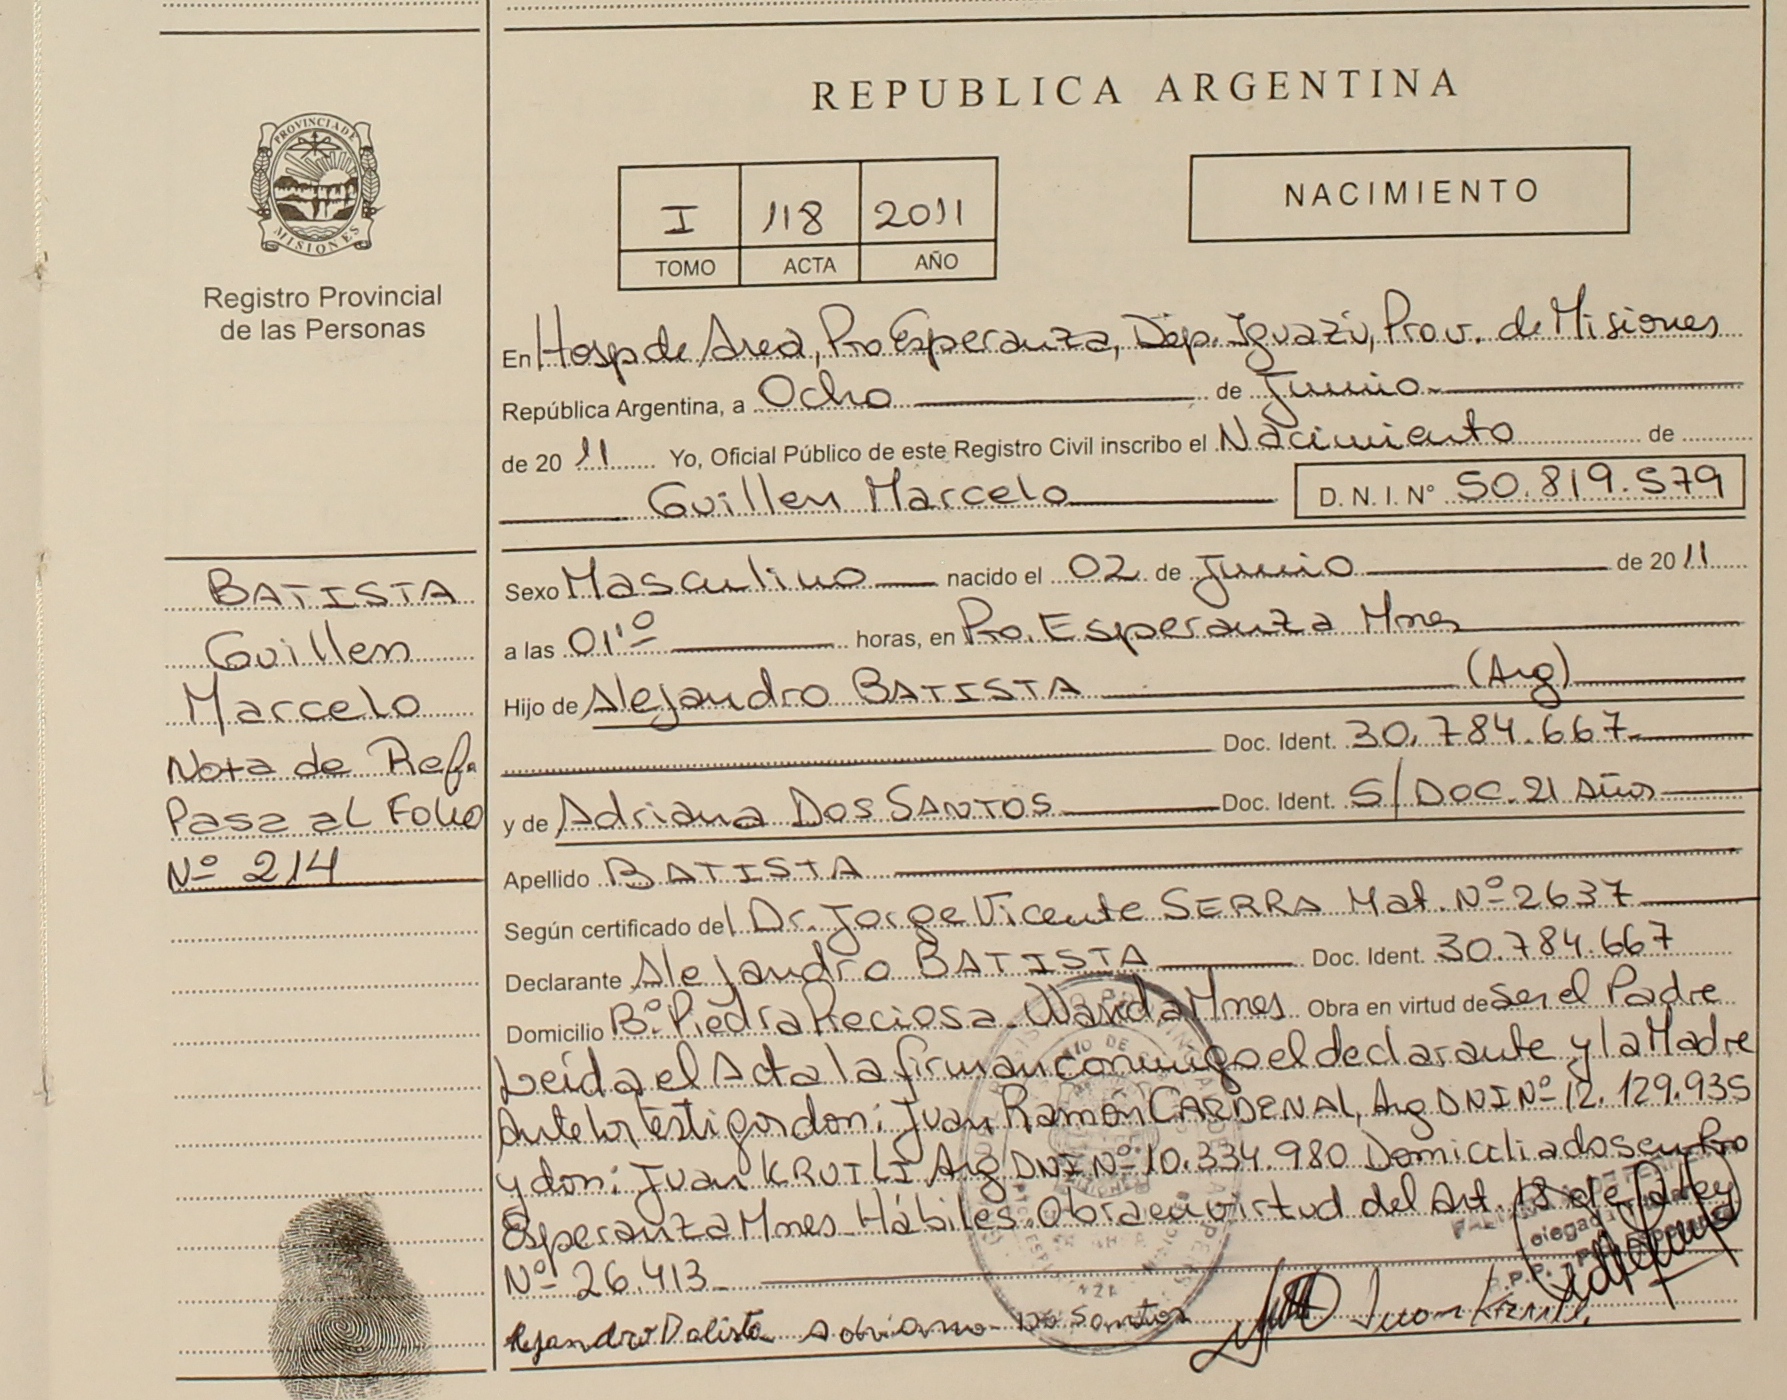 REPUBLICA ARGENTINA
PROVINCIA DE
MISIONES
Registro Provincial
de las Personas
I 118 2011
TOMO ACTA AÑO
NACIMIENTO
En Hosp de Area, Pto Esperanza, Dep. Iguazú, Prov. de Misiones
República Argentina, a Ocho de Junio
de 2011 Yo, Oficial Público de este Registro Civil inscribo el Nacimiento de
Guillen Marcelo D. N. I. Nº 50.819.579
BATISTA
Guillen
Marcelo
Nota de Ref.
Pasa al Folio
Nº 214
Sexo Masculino nacido el 02 de Junio de 2011
a las 01'º horas, en Pto. Esperanza Mnes
Hijo de Alejandro BATISTA (Arg)
Doc. Ident. 30.784.667
y de Adriana DOS SANTOS Doc. Ident. S/DOC. 21 Años
Apellido BATISTA
Según certificado del Dr. Jorge Vicente SERRA Mat. Nº 2637
Declarante Alejandro BATISTA Doc. Ident. 30.784.667
Domicilio Bº. Piedra Preciosa. Wanda Mnes Obra en virtud de ser el Padre
Leída el Acta la firman conmigo el declarante y la Madre
Ante los testigos don: Juan Ramón CARDENAL, Arg DNI Nº 12.129.935
y don: Juan KRUTLI Arg DNI Nº 10.334.980 Domiciliados en Pto
Esperanza Mnes. Hábiles. Obra en virtud del Art. 18 de la Ley
Nº 26.413
Alejandro Batista Adriana Dos Santos Juan